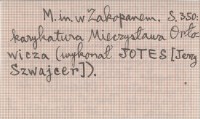 M.in. w Zakopanem. S. 350:
karykatura Mieczysława Orło-
wicza (wykonał JOTES [Jerzy
Szwajcer]).